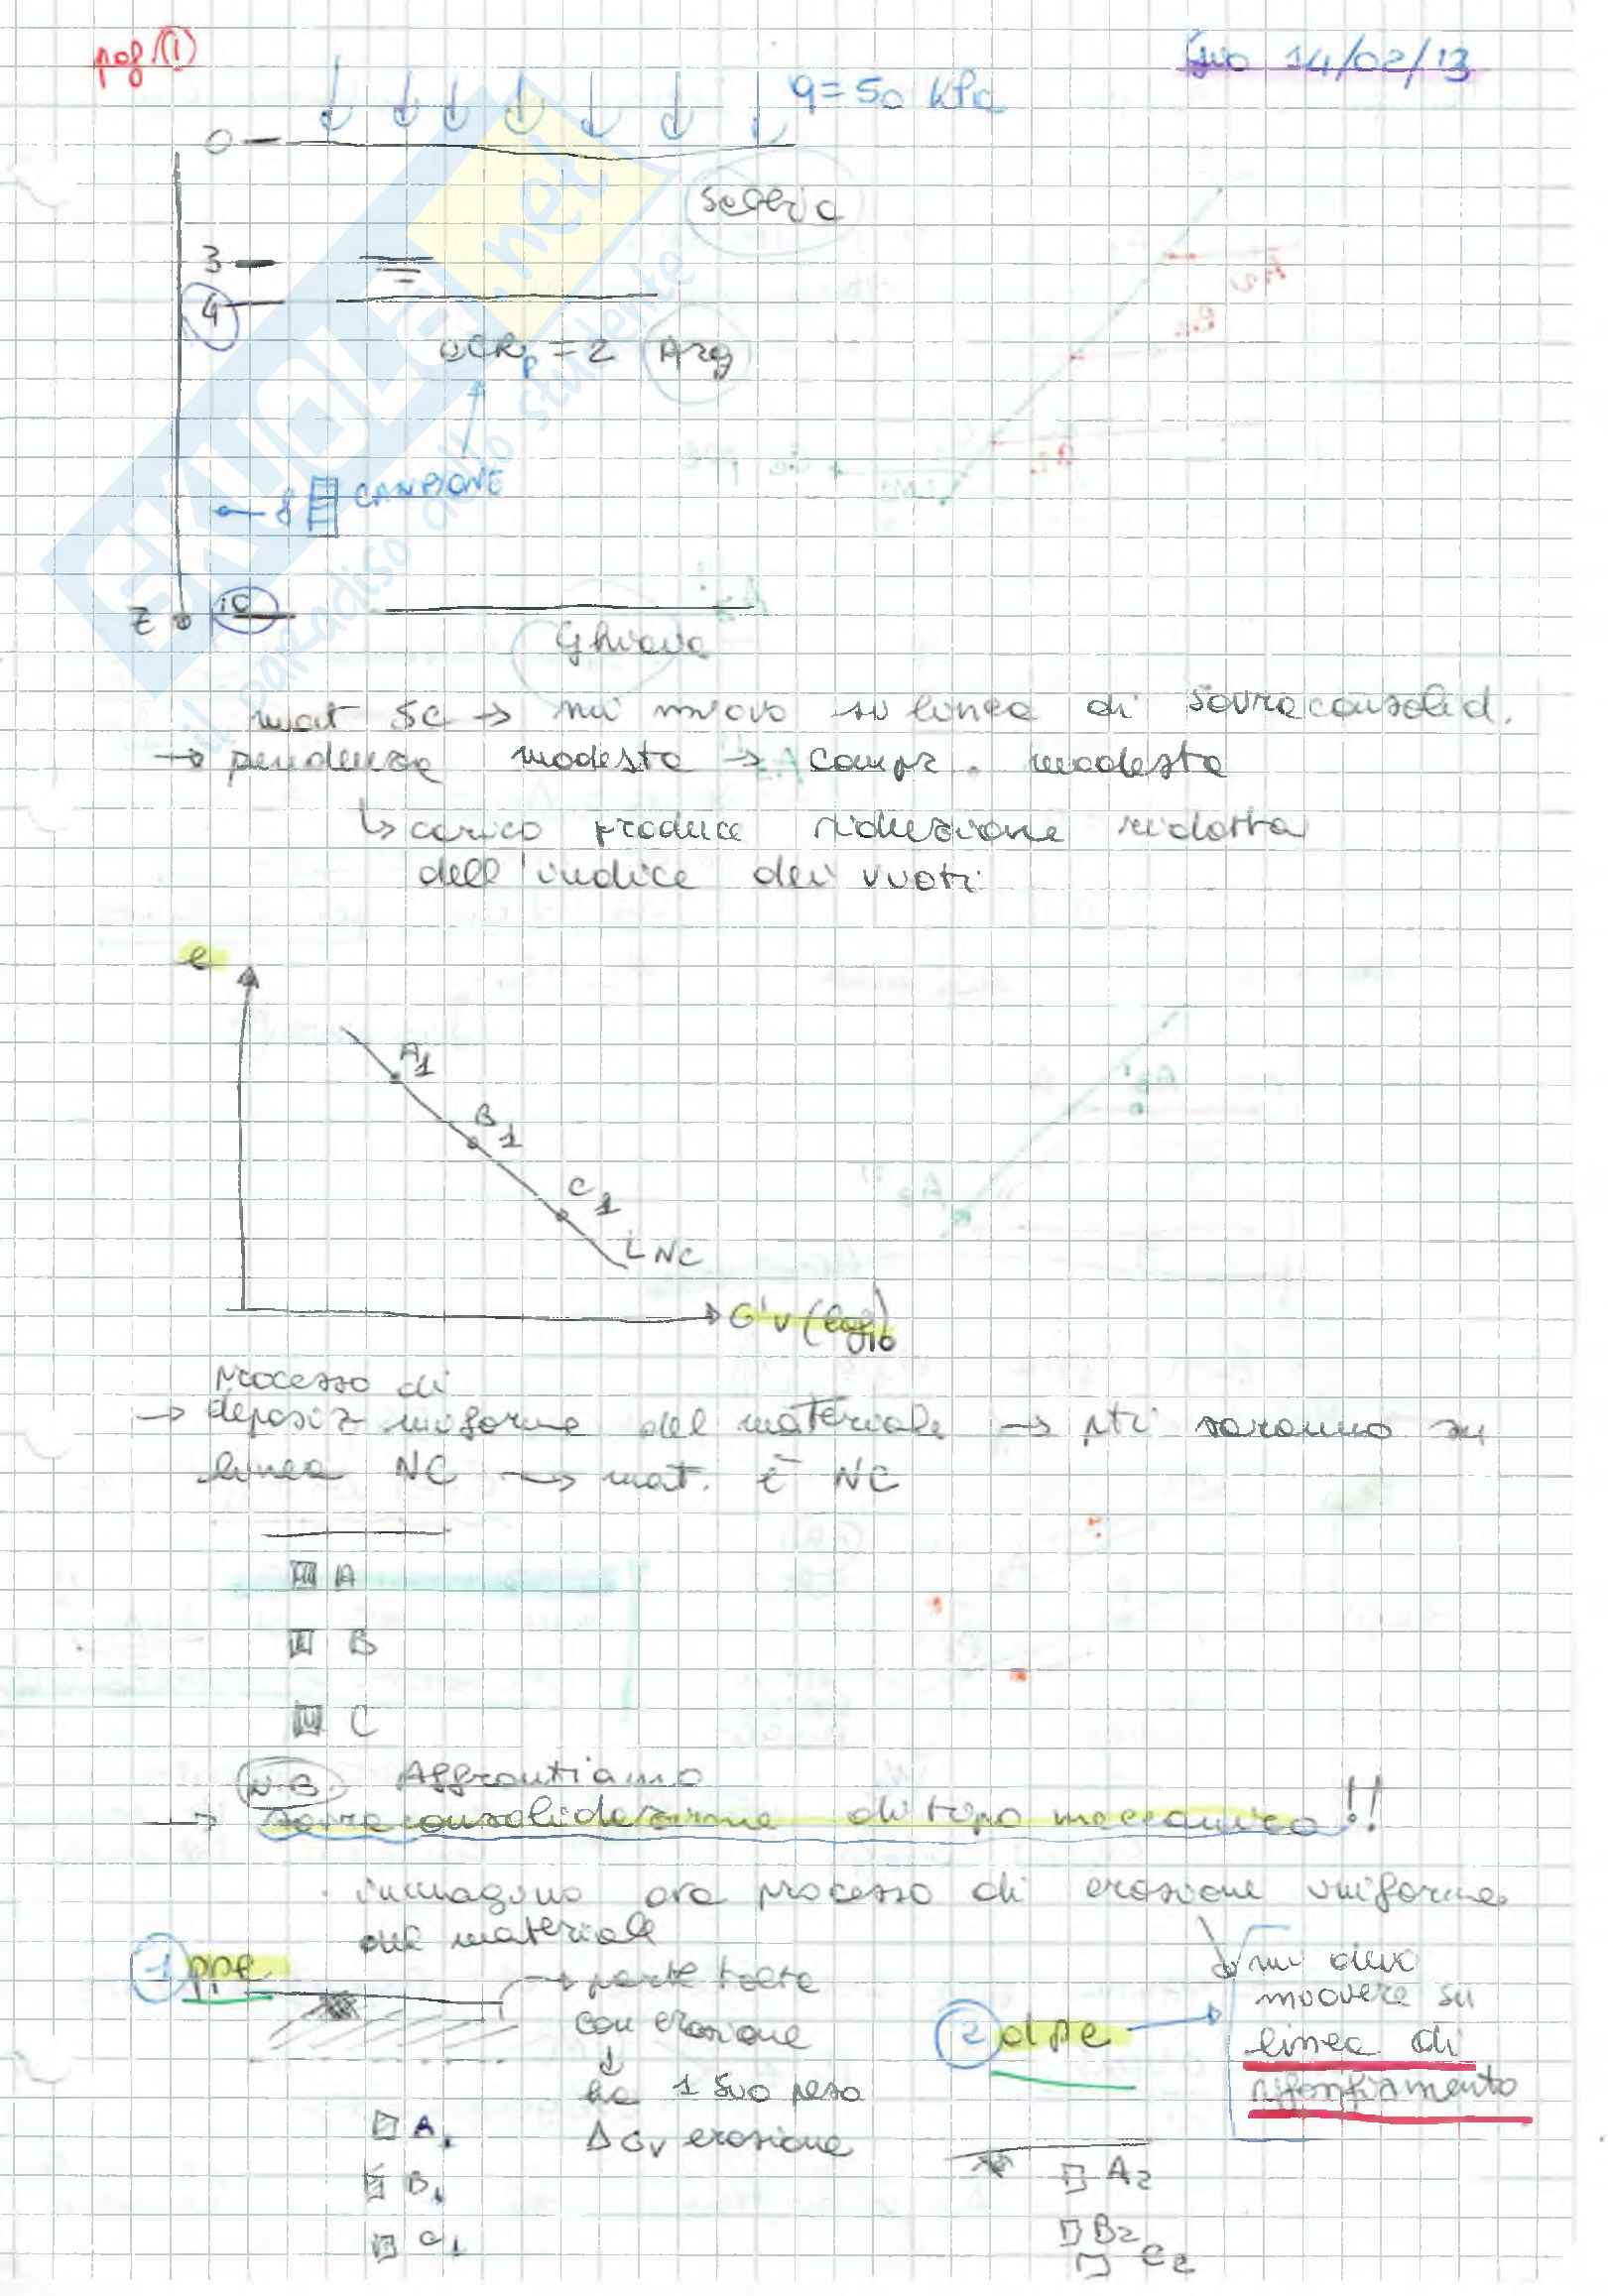 pag. (1)
Giio 14/02/13
q = 50 kPa
0
Sabbia
3
4
OCRp = 2 Arg
8 CAMPIONE
z 10
Ghiaia
SKUOLA.net
il paradiso dello studente
mat SC → mi muovo su linea di sovraconsolid.
→ pendenza modesta → compr. modesta
↳ carico produce riduzione ridotta
dell'indice dei vuoti
e
A1
B1
C1
LNC
σ'v (log10)
Processo di
→ deposiz uniforme del materiale → pti saranno su
linea NC → mat. è NC
A
B
C
N.B. Affrontiamo
→ sovraconsolidazione di tipo meccanico!!
immagino ora processo di erosione uniforme
del materiale
1 ppe
→ parte tolta
con erosione
↓
ha 1 suo peso
Δσv erosione
A1
B1
C1
2 dpe →
mi devo
muovere su
linea di
rifonfiamento
A2
B2
C2